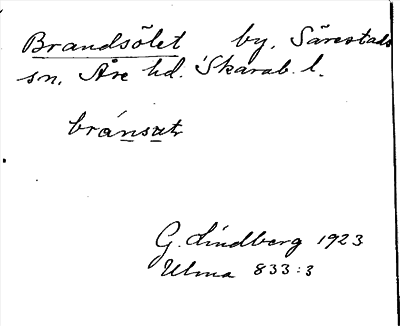 Brandsölet by, Särestads
sn, Åse hd. Skarab. l.
bránsɯtr
G. Lindberg 1923
Ulma 833:3